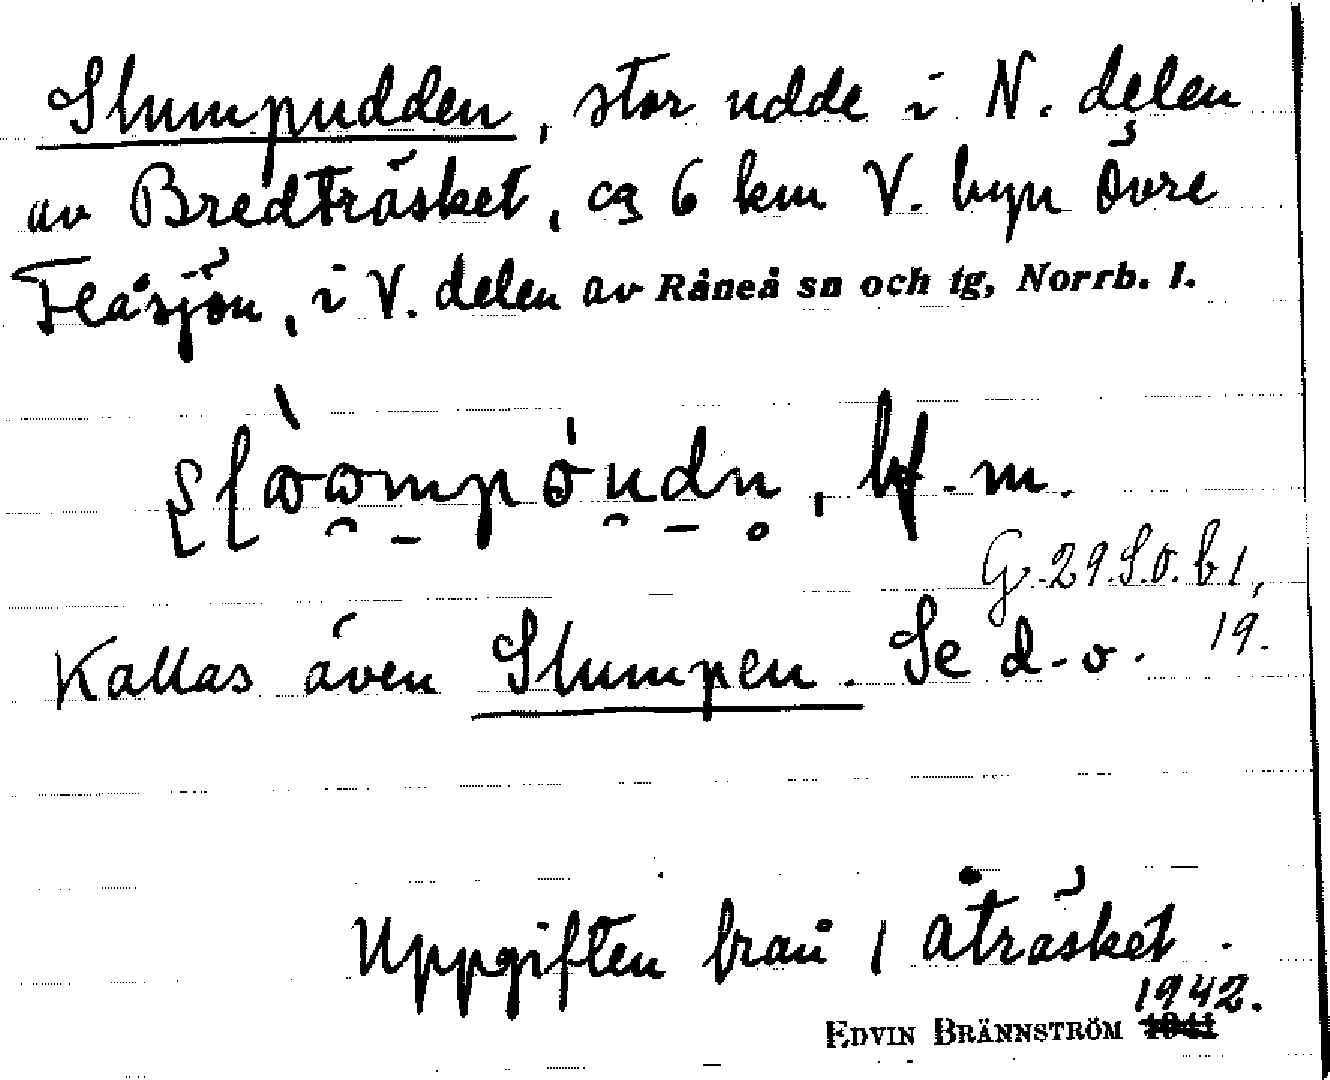 Slumpudden, stor udde i N. delen
av Bredträsket, ca 6 km V. byn Övre
Flåsjön, i V. delen av Råneå sn och tg, Norrb. l.
bf. m.
G. 29 S.O. b 1,
19.
Kallas även Slumpen. Se d. o.
Uppgiften från 1 Åträsket.
1942.
EDVIN BRÄNNSTRÖM 1941